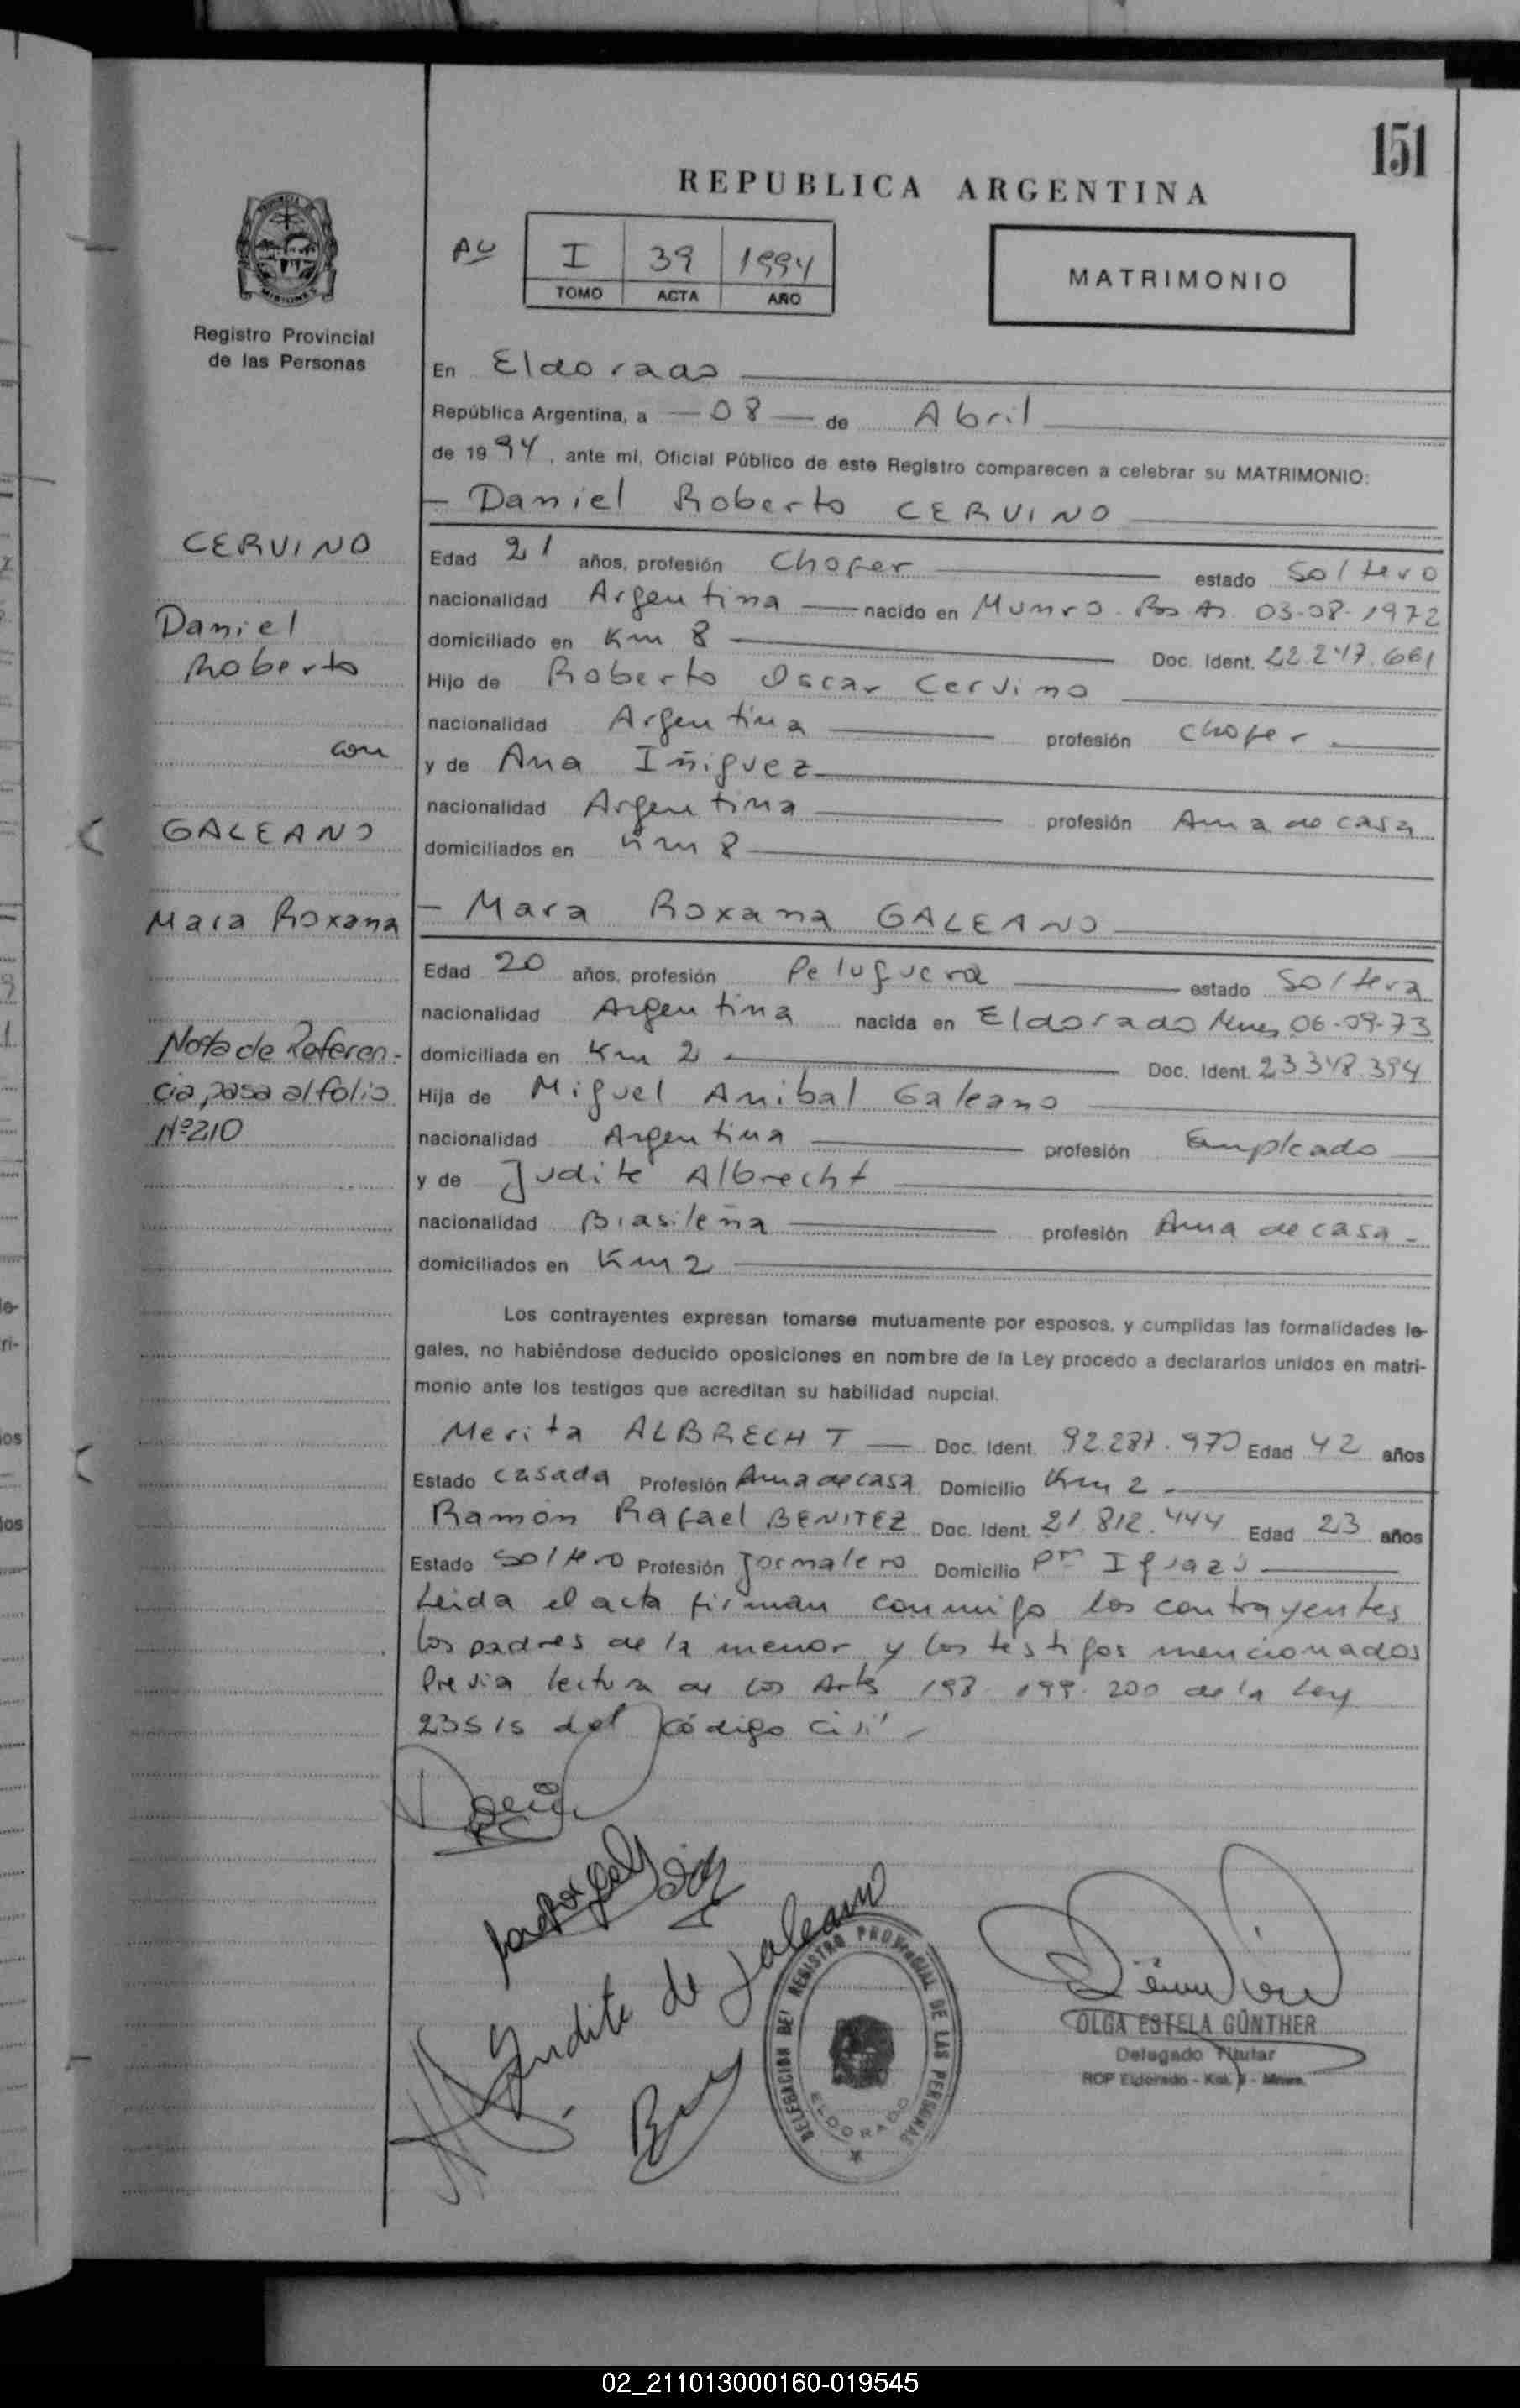 151
REPUBLICA ARGENTINA
PROVINCIA DE
MISIONES
Registro Provincial
de las Personas
Au
I 39 1994
TOMO ACTA AÑO
MATRIMONIO
En Eldorado
República Argentina, a 08 de Abril
de 1994, ante mí, Oficial Público de este Registro comparecen a celebrar su MATRIMONIO:
- Daniel Roberto CERVINO
CERVINO
Daniel
Roberto
con
GALEANO
Mara Roxana
Nota de Referen-
cia pasa al folio
Nº210
Edad 21 años, profesión Chofer estado Soltero
nacionalidad Argentina nacido en Munro Bs As. 03-08-1972
domiciliado en Km 8 Doc. Ident. 22.247.661
Hijo de Roberto Oscar Cervino
nacionalidad Argentina profesión chofer
y de Ana Iñiguez
nacionalidad Argentina profesión Ama de casa
domiciliados en Km 8
- Mara Roxana GALEANO
Edad 20 años, profesión Peluquera estado Soltera
nacionalidad Argentina nacida en Eldorado Mnes 06-09-73
domiciliada en Km 2 Doc. Ident. 23.348.394
Hija de Miguel Anibal Galeano
nacionalidad Argentina profesión Empleado
y de Judite Albrecht
nacionalidad Brasileña profesión Ama de casa -
domiciliados en Km 2
Los contrayentes expresan tomarse mutuamente por esposos, y cumplidas las formalidades le-
gales, no habiéndose deducido oposiciones en nombre de la Ley procedo a declararlos unidos en matri-
monio ante los testigos que acreditan su habilidad nupcial.
Merita ALBRECHT Doc. Ident. 92.287.970 Edad 42 años
Estado casada Profesión Ama de casa Domicilio Km 2
Ramón Rafael BENITEZ Doc. Ident. 21.812.444 Edad 23 años
Estado Soltero Profesión Jornalero Domicilio Pto Iguazú
Leida el acta firman conmigo los contrayentes
los padres de la menor y los testigos mencionados
Previa lectura de los Arts 198-199-200 de la Ley
23515 del código civil
Judite de Galeano
DELEGACION DEL REGISTRO PROVINCIAL DE LAS PERSONAS
ELDORADO
OLGA ESTELA GÜNTHER
Delegado Titular
RCP Eldorado - Km. - Mnes.
02_211013000160-019545